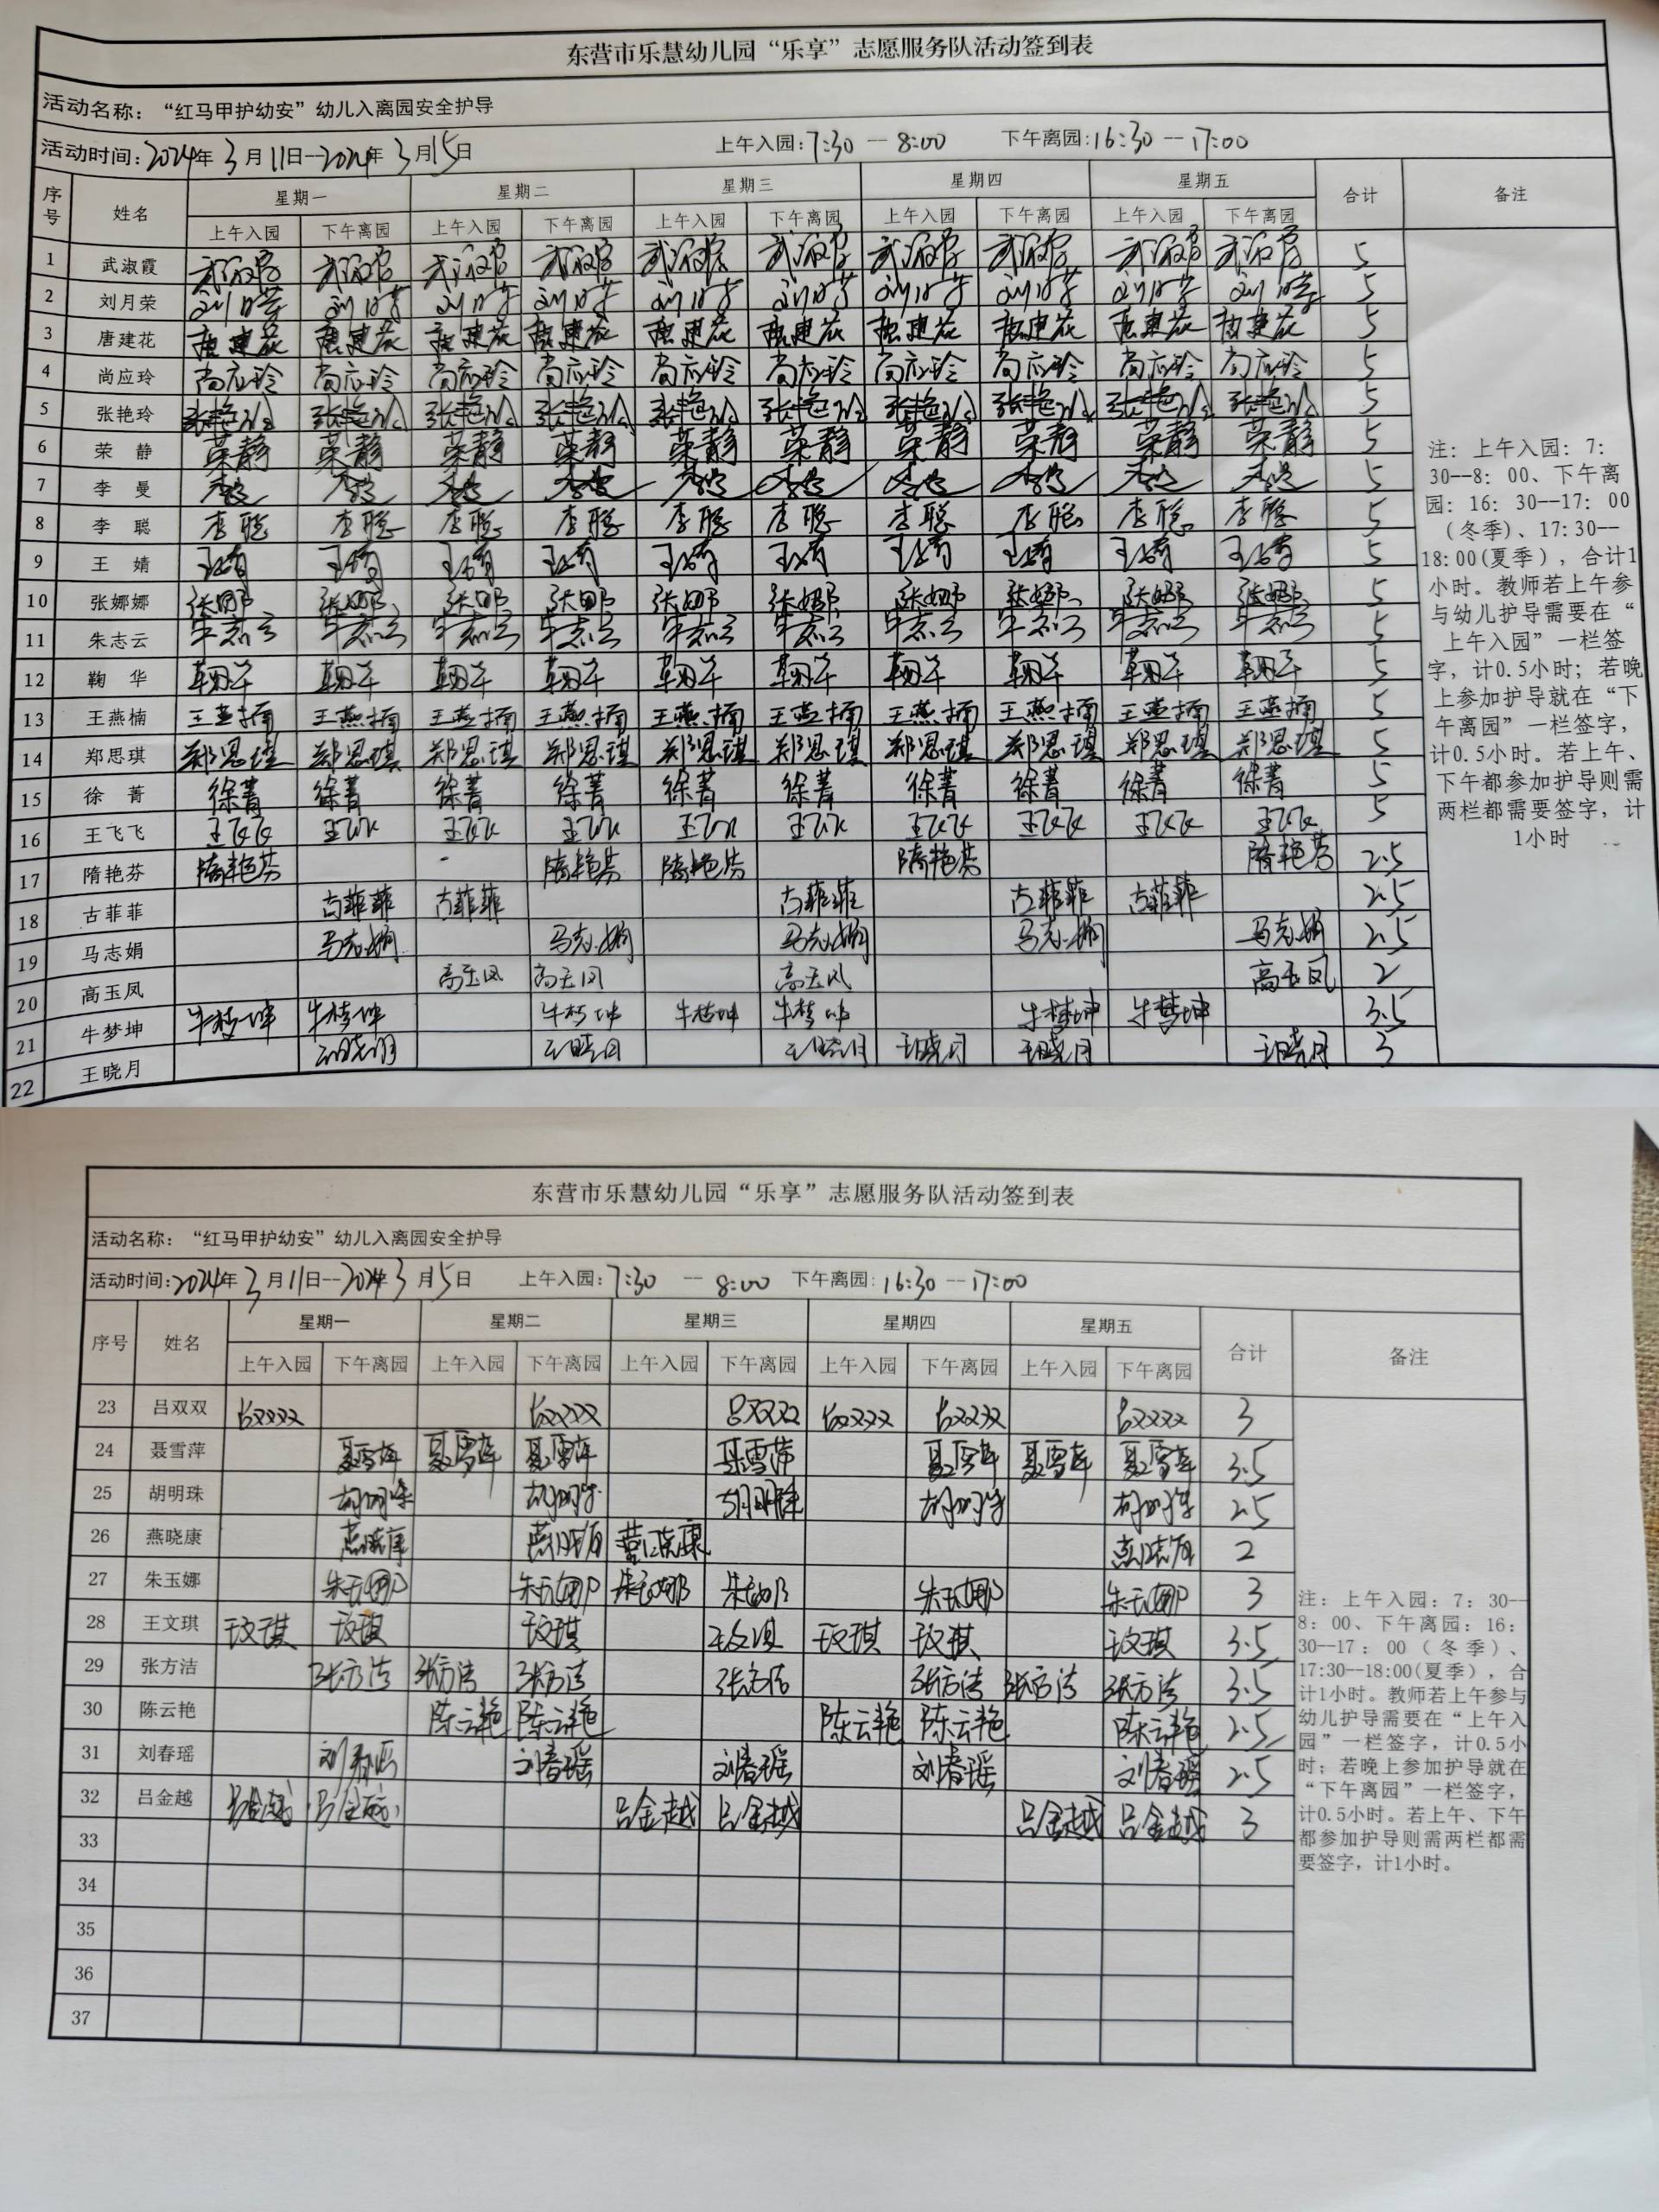 东营市乐慧幼儿园“乐享”志愿服务队活动签到表
活动名称：“红马甲护幼安”幼儿入离园安全护导
活动时间:2024年3月11日--2024年3月15日 上午入园:7:30--8:00 下午离园:16:30--17:00
序号 姓名 星期一 星期二 星期三 星期四 星期五 合计 备注
上午入园 下午离园 上午入园 下午离园 上午入园 下午离园 上午入园 下午离园 上午入园 下午离园
1 武淑霞 武淑霞 武淑霞 武淑霞 武淑霞 武淑霞 武淑霞 武淑霞 武淑霞 武淑霞 武淑霞 5
2 刘月荣 刘月荣 刘月荣 刘月荣 刘月荣 刘月荣 刘月荣 刘月荣 刘月荣 刘月荣 刘月荣 5
3 唐建花 唐建花 唐建花 唐建花 唐建花 唐建花 唐建花 唐建花 唐建花 唐建花 唐建花 5
4 尚应玲 尚应玲 尚应玲 尚应玲 尚应玲 尚应玲 尚应玲 尚应玲 尚应玲 尚应玲 尚应玲 5
5 张艳玲 张艳玲 张艳玲 张艳玲 张艳玲 张艳玲 张艳玲 张艳玲 张艳玲 张艳玲 张艳玲 5
6 荣 静 荣静 荣静 荣静 荣静 荣静 荣静 荣静 荣静 荣静 荣静 5
7 李 曼 李曼 李曼 李曼 李曼 李曼 李曼 李曼 李曼 李曼 李曼 5
8 李 聪 李聪 李聪 李聪 李聪 李聪 李聪 李聪 李聪 李聪 李聪 5
9 王 婧 王婧 王婧 王婧 王婧 王婧 王婧 王婧 王婧 王婧 王婧 5
10 张娜娜 张娜 张娜娜 张娜 张娜 张娜 张娜娜 张娜 张娜娜 张娜娜 张娜娜 5
11 朱志云 朱志云 朱志云 朱志云 朱志云 朱志云 朱志云 朱志云 朱志云 朱志云 朱志云 5
12 鞠 华 鞠华 鞠华 鞠华 鞠华 鞠华 鞠华 鞠华 鞠华 鞠华 鞠华 5
13 王燕楠 王燕楠 王燕楠 王燕楠 王燕楠 王燕楠 王燕楠 王燕楠 王燕楠 王燕楠 王燕楠 5
14 郑思琪 郑思琪 郑思琪 郑思琪 郑思琪 郑思琪 郑思琪 郑思琪 郑思琪 郑思琪 郑思琪 5
15 徐 菁 徐菁 徐菁 徐菁 徐菁 徐菁 徐菁 徐菁 徐菁 徐菁 徐菁 5
16 王飞飞 王飞飞 王飞飞 王飞飞 王飞飞 王飞飞 王飞飞 王飞飞 王飞飞 王飞飞 王飞飞 5
17 隋艳芬 隋艳芬 隋艳芬 隋艳芬 隋艳芬 隋艳芬 2.5
18 古菲菲 古菲菲 古菲菲 古菲菲 古菲菲 古菲菲 2.5
19 马志娟 马志娟 马志娟 马志娟 马志娟 马志娟 2.5
20 高玉凤 高玉凤 高玉凤 高玉凤 高玉凤 2
21 牛梦坤 牛梦坤 牛梦坤 牛梦坤 牛梦坤 牛梦坤 牛梦坤 牛梦坤 3.5
22 王晓月 王晓月 王晓月 王晓月 王晓月 王晓月 王晓月 3
注：上午入园：7：
30--8：00、下午离
园：16：30--17：00
（冬季）、17:30--
18:00(夏季），合计1
小时。教师若上午参
与幼儿护导需要在“
上午入园”一栏签
字，计0.5小时；若晚
上参加护导就在“下
午离园”一栏签字，
计0.5小时。若上午、
下午都参加护导则需
两栏都需要签字，计
1小时
东营市乐慧幼儿园“乐享”志愿服务队活动签到表
活动名称：“红马甲护幼安”幼儿入离园安全护导
活动时间:2024年3月11日--2024年3月15日 上午入园:7:30--8:00 下午离园:16:30--17:00
序号 姓名 星期一 星期二 星期三 星期四 星期五 合计 备注
上午入园 下午离园 上午入园 下午离园 上午入园 下午离园 上午入园 下午离园 上午入园 下午离园
23 吕双双 吕双双 吕双双 吕双双 吕双双 吕双双 吕双双 3
24 聂雪萍 聂雪萍 聂雪萍 聂雪萍 聂雪萍 聂雪萍 聂雪萍 聂雪萍 3.5
25 胡明珠 胡明珠 胡明珠 胡明珠 胡明珠 胡明珠 2.5
26 燕晓康 燕晓康 燕晓康 燕晓康 燕晓康 2
27 朱玉娜 朱玉娜 朱玉娜 朱玉娜 朱玉娜 朱玉娜 朱玉娜 3
28 王文琪 王文琪 王文琪 王文琪 王文琪 王文琪 王文琪 王文琪 3.5
29 张方洁 张方洁 张方洁 张方洁 张方洁 张方洁 张方洁 张方洁 3.5
30 陈云艳 陈云艳 陈云艳 陈云艳 陈云艳 陈云艳 2.5
31 刘春瑶 刘春瑶 刘春瑶 刘春瑶 刘春瑶 刘春瑶 2.5
32 吕金越 吕金越 吕金越 吕金越 吕金越 吕金越 吕金越 3
33
34
35
36
37
注：上午入园：7：30--
8：00、下午离园：16：
30--17：00（冬季）、
17:30--18:00(夏季），合
计1小时。教师若上午参与
幼儿护导需要在“上午入
园”一栏签字，计0.5小
时；若晚上参加护导就在
“下午离园”一栏签字，
计0.5小时。若上午、下午
都参加护导则需两栏都需
要签字，计1小时。